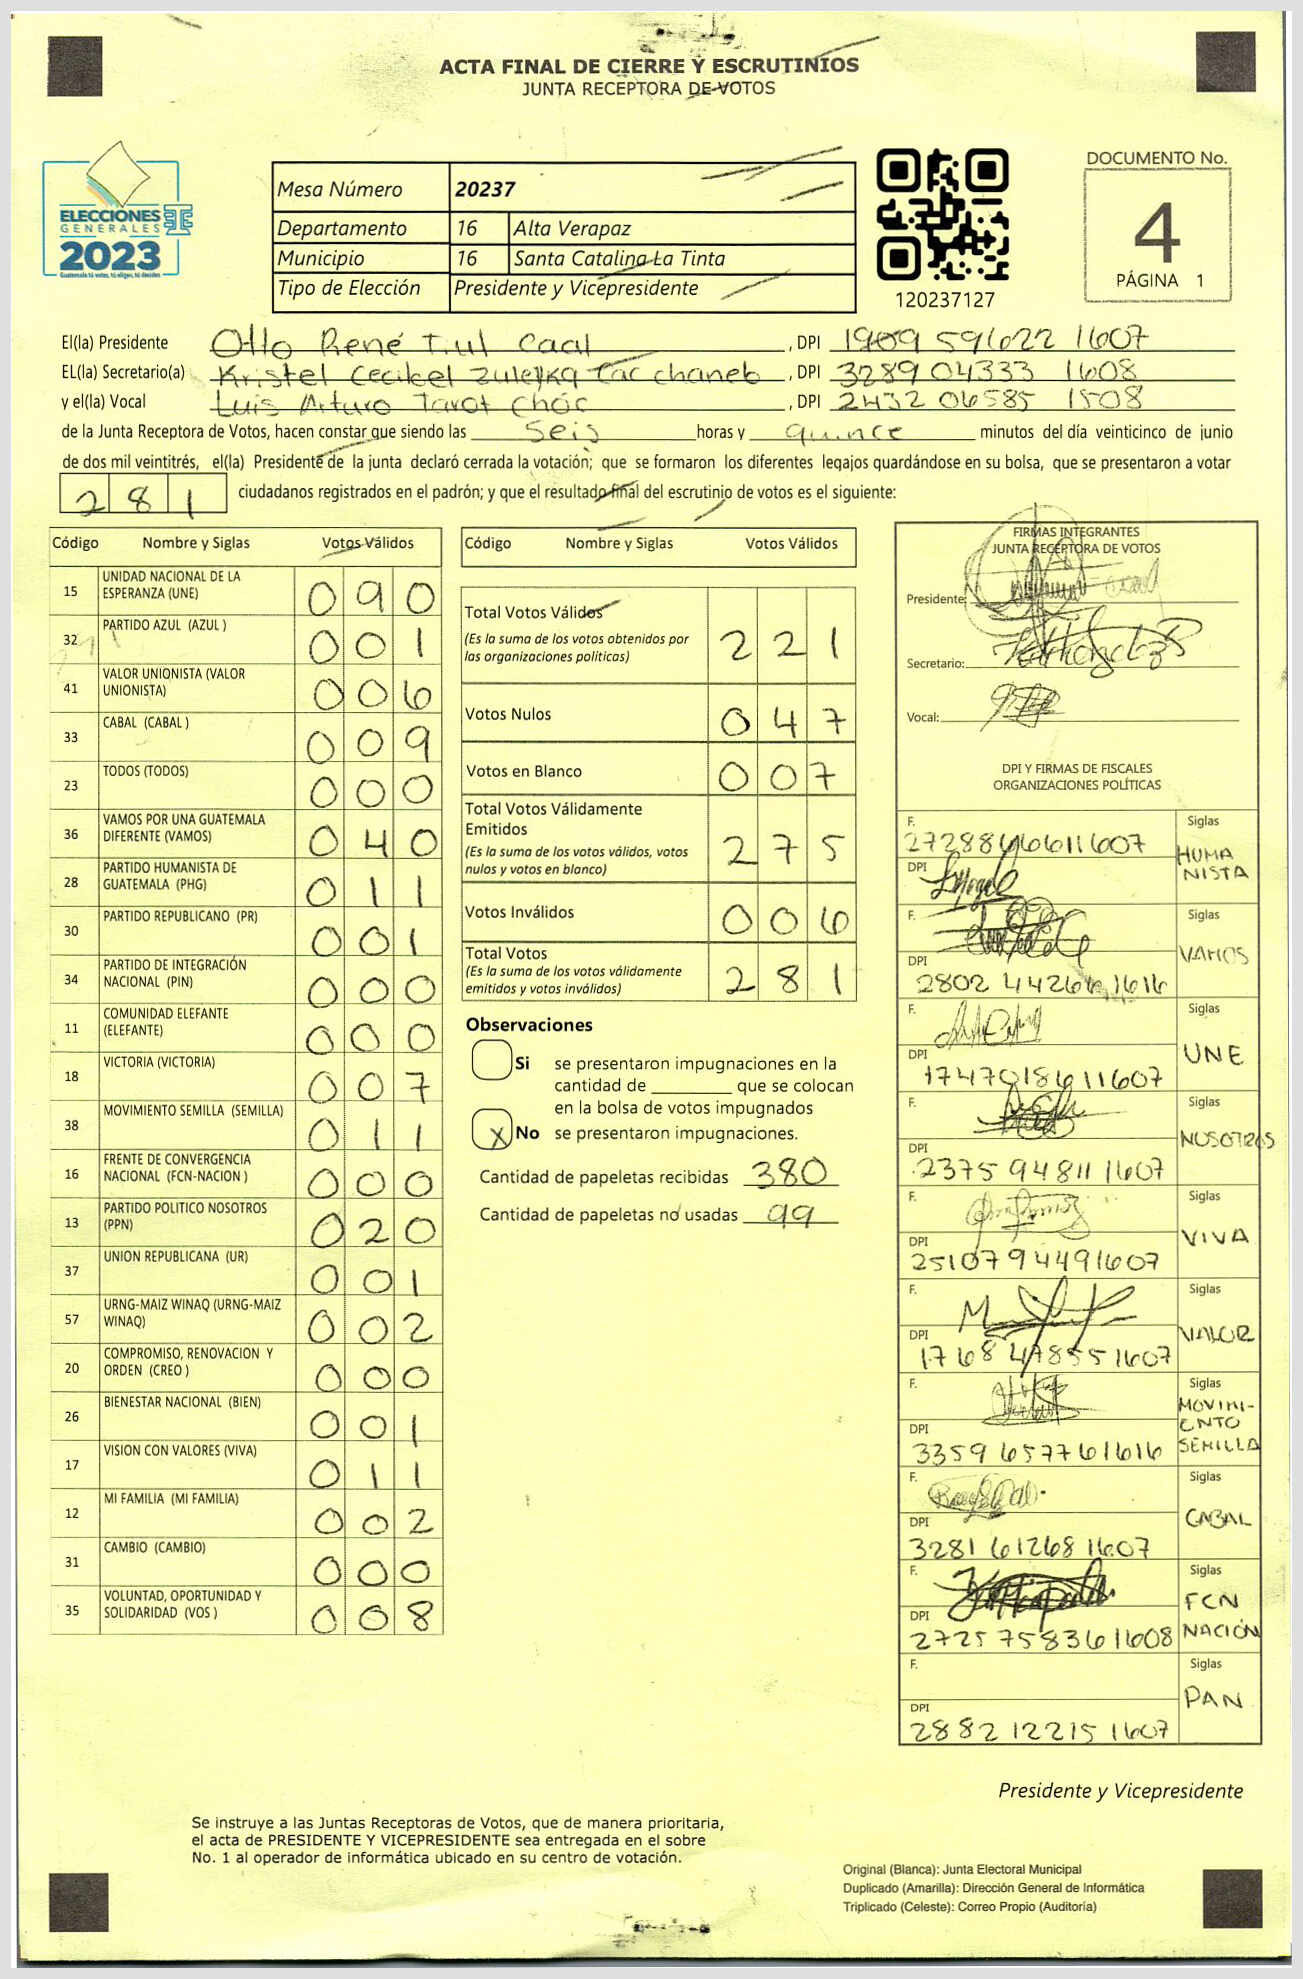 ACTA FINAL DE CIERRE Y ESCRUTINIOS
JUNTA RECEPTORA DE VOTOS
ELECCIONES
GENERALES
2023
Guatemala tú votas, tú eliges, tú decides
Mesa Número 20237
Departamento 16 Alta Verapaz
Municipio 16 Santa Catalina La Tinta
Tipo de Elección Presidente y Vicepresidente
120237127
DOCUMENTO No.
4
PÁGINA 1
El(la) Presidente Otto René Tiul Caal, DPI 1909 59622 1607
EL(la) Secretario(a) Kristel Cecibel Zuleyka Cac chaneb, DPI 3289 04333 1608
y el(la) Vocal Luis Arturo Tarot Choc, DPI 2432 06585 1508
de la Junta Receptora de Votos, hacen constar que siendo las Seis horas y quince minutos del día veinticinco de junio
de dos mil veintitrés, el(la) Presidente de la junta declaró cerrada la votación; que se formaron los diferentes legajos guardándose en su bolsa, que se presentaron a votar
281 ciudadanos registrados en el padrón; y que el resultado final del escrutinio de votos es el siguiente:
Código Nombre y Siglas Votos Válidos
15 UNIDAD NACIONAL DE LA ESPERANZA (UNE) 090
32 PARTIDO AZUL (AZUL ) 001
41 VALOR UNIONISTA (VALOR UNIONISTA) 006
33 CABAL (CABAL ) 009
23 TODOS (TODOS) 000
36 VAMOS POR UNA GUATEMALA DIFERENTE (VAMOS) 040
28 PARTIDO HUMANISTA DE GUATEMALA (PHG) 011
30 PARTIDO REPUBLICANO (PR) 001
34 PARTIDO DE INTEGRACIÓN NACIONAL (PIN) 000
11 COMUNIDAD ELEFANTE (ELEFANTE) 000
18 VICTORIA (VICTORIA) 007
38 MOVIMIENTO SEMILLA (SEMILLA) 011
16 FRENTE DE CONVERGENCIA NACIONAL (FCN-NACION ) 000
13 PARTIDO POLITICO NOSOTROS (PPN) 020
37 UNION REPUBLICANA (UR) 001
57 URNG-MAIZ WINAQ (URNG-MAIZ WINAQ) 002
20 COMPROMISO, RENOVACION Y ORDEN (CREO ) 000
26 BIENESTAR NACIONAL (BIEN) 001
17 VISION CON VALORES (VIVA) 011
12 MI FAMILIA (MI FAMILIA) 002
31 CAMBIO (CAMBIO) 000
35 VOLUNTAD, OPORTUNIDAD Y SOLIDARIDAD (VOS ) 008
Código Nombre y Siglas Votos Válidos
Total Votos Válidos 221
(Es la suma de los votos obtenidos por
las organizaciones politicas)
Votos Nulos 047
Votos en Blanco 007
Total Votos Válidamente
Emitidos 275
(Es la suma de los votos válidos, votos
nulos y votos en blanco)
Votos Inválidos 006
Total Votos 281
(Es la suma de los votos válidamente
emitidos y votos inválidos)
Observaciones
Si se presentaron impugnaciones en la
cantidad de ________ que se colocan
en la bolsa de votos impugnados
X No se presentaron impugnaciones.
Cantidad de papeletas recibidas 380
Cantidad de papeletas no usadas 99
FIRMAS INTEGRANTES
JUNTA RECEPTORA DE VOTOS
Presidente:
Secretario:
Vocal:
DPI Y FIRMAS DE FISCALES
ORGANIZACIONES POLÍTICAS
F. Siglas
DPI HUMANISTA
F. Siglas
VAMOS
DPI
F. Siglas
UNE
DPI 1747018611607
F. Siglas
NOSOTROS
DPI 2375 94811 1607
F. Siglas
VIVA
DPI 2510794491607
F. Siglas
VALOR
DPI 1768 47855 1607
F. Siglas
MOVIMIENTO SEMILLA
DPI 3359 657761616
F. Siglas
CABAL
DPI 3281 61268 1607
F. Siglas
FCN NACIÓN
DPI 2725 758361608
F. Siglas
PAN
DPI 2882 12215 1607
Presidente y Vicepresidente
Se instruye a las Juntas Receptoras de Votos, que de manera prioritaria,
el acta de PRESIDENTE Y VICEPRESIDENTE sea entregada en el sobre
No. 1 al operador de informática ubicado en su centro de votación.
Original (Blanca): Junta Electoral Municipal
Duplicado (Amarilla): Dirección General de Informática
Triplicado (Celeste): Correo Propio (Auditoría)